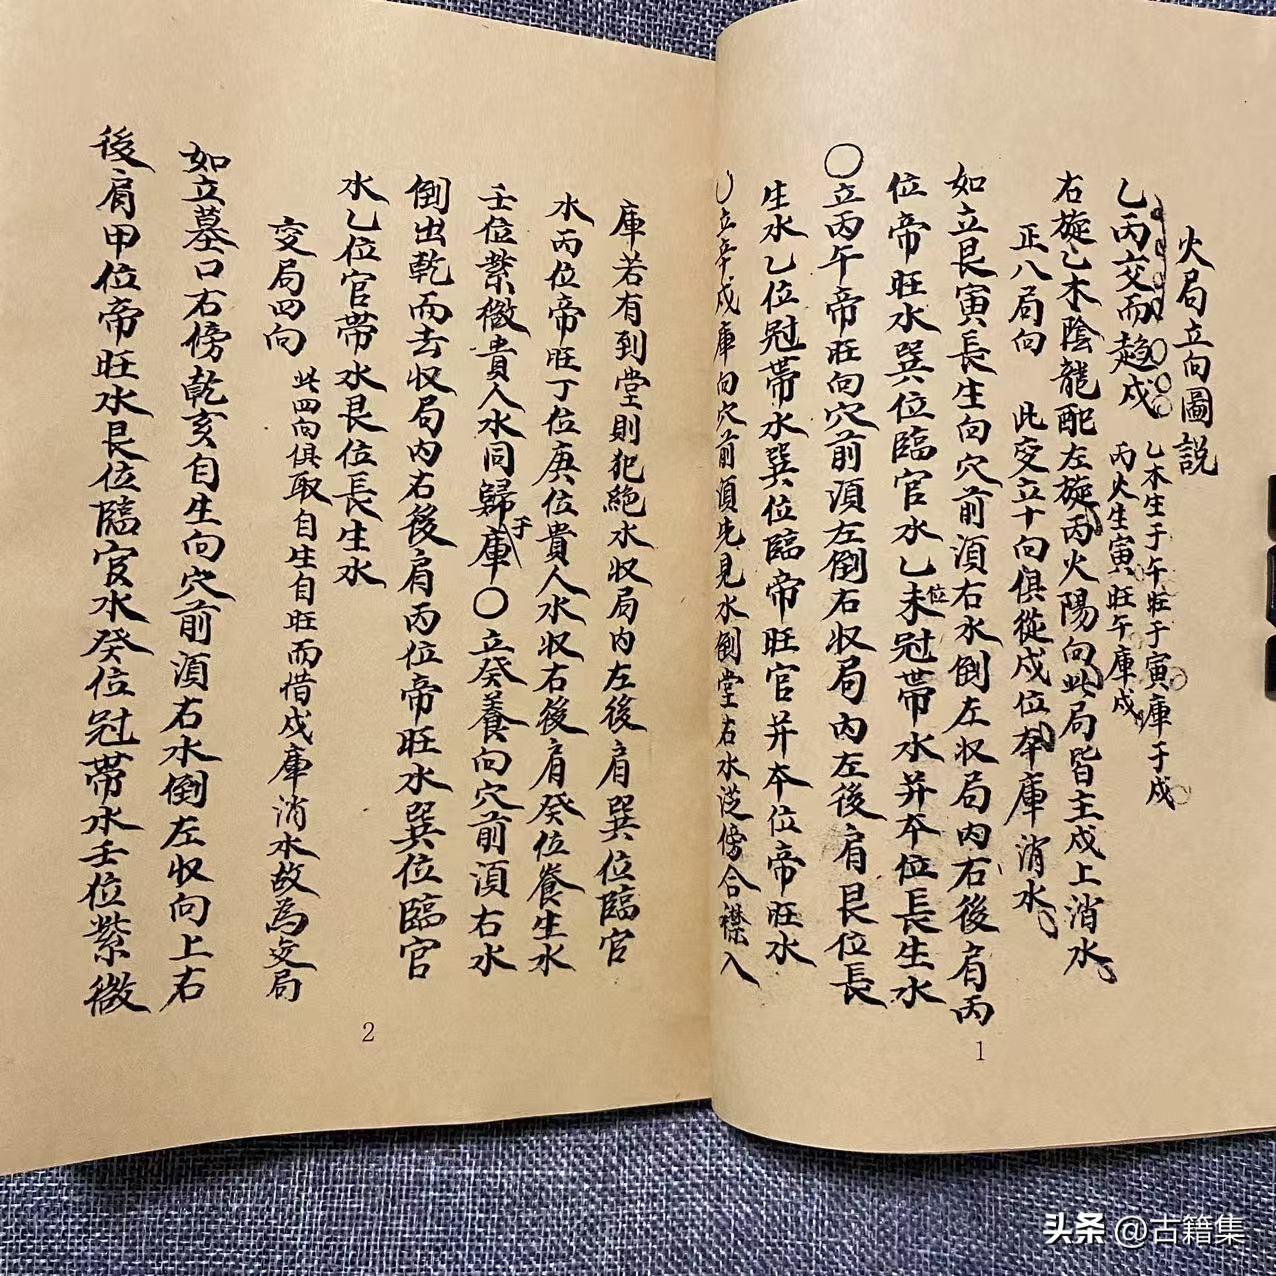 火局立向圖說
乙丙交而趨戍 乙木生于午旺于寅庫于戍
丙火生寅旺午庫戍
右旋乙木陰龍配左旋丙火陽向此局皆主戍上消水
正八局向 此变立十向俱從戍位本庫消水
如立艮寅長生向穴前湏右水倒左収局内右後肩丙
位帝旺水巽位臨官水乙未位冠帶水并本位長生水
〇立丙午帝旺向穴前湏左倒右収局内左後肩艮位長
生水乙位冠帶水巽位臨帝旺官并本位帝旺水
〇立辛戍庫向穴前湏先見水倒堂右水從傍合襟入
1
庫若有到堂則犯絶水収局内左後肩巽位臨官
水丙位帝旺丁位庚位貴人水収右後肩癸位養生水
壬位紫微貴人水同歸于庫〇立癸養向穴前湏右水
倒出乾而去収局内右後肩丙位帝旺水巽位臨官
水乙位官帶水艮位長生水
变局四向 此四向俱取自生自旺而借戍庫消水故為变局
如立墓口右傍乾亥自生向穴前湏右水倒左収向上右
後肩甲位帝旺水艮位臨官水癸位冠帶水壬位紫微
2
头条 @古籍集